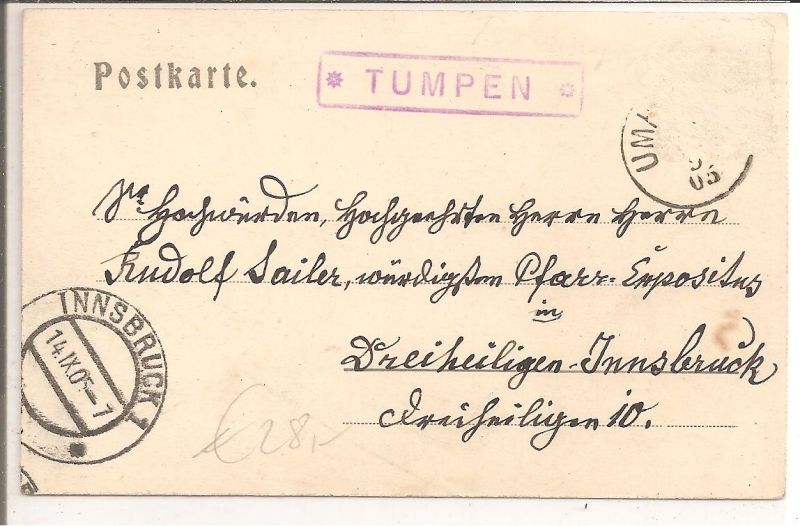 Postkarte.
* TUMPEN *
UMA
05
Sr Hochwürden, Hochgeehrten Herrn Herrn
Rudolf Sailer, würdigsten Pfarr-Expositus
in
Dreiheiligen-Innsbruck
Dreiheiligen 10.
INNSBRUCK 1
14.IX.05-7
€ 28,-